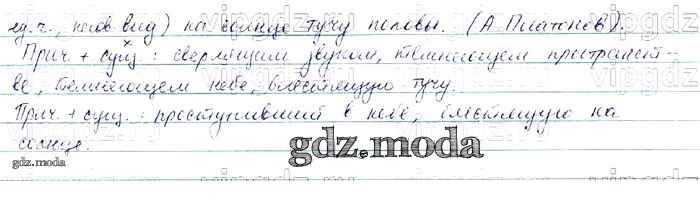 ед.ч., несов. вид) на солнце тучу половы. (А. Платонов).
Прич. + сущ.: сверлящим звуком, темнеющем пространст-
ве, темнеющем небе, блестящую тучу.
Прич. + сущ.: проступивший в небе, блестящую на
солнце.
gdz.moda
gdz.moda